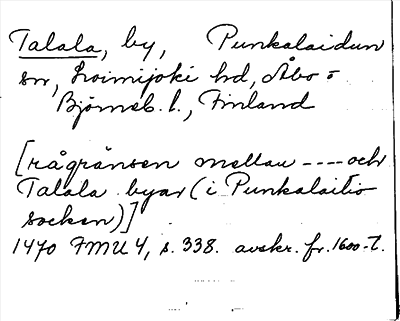 Talala, by, Punkalaidun
sn, Loimijoki hd, Åbo o
Björneb. l., Finland
[rågränsen mellan ---- och
Talala byar (i Punkalaitio
socken)]
1470 FMU 4, s. 338. avskr. fr. 1600-t.